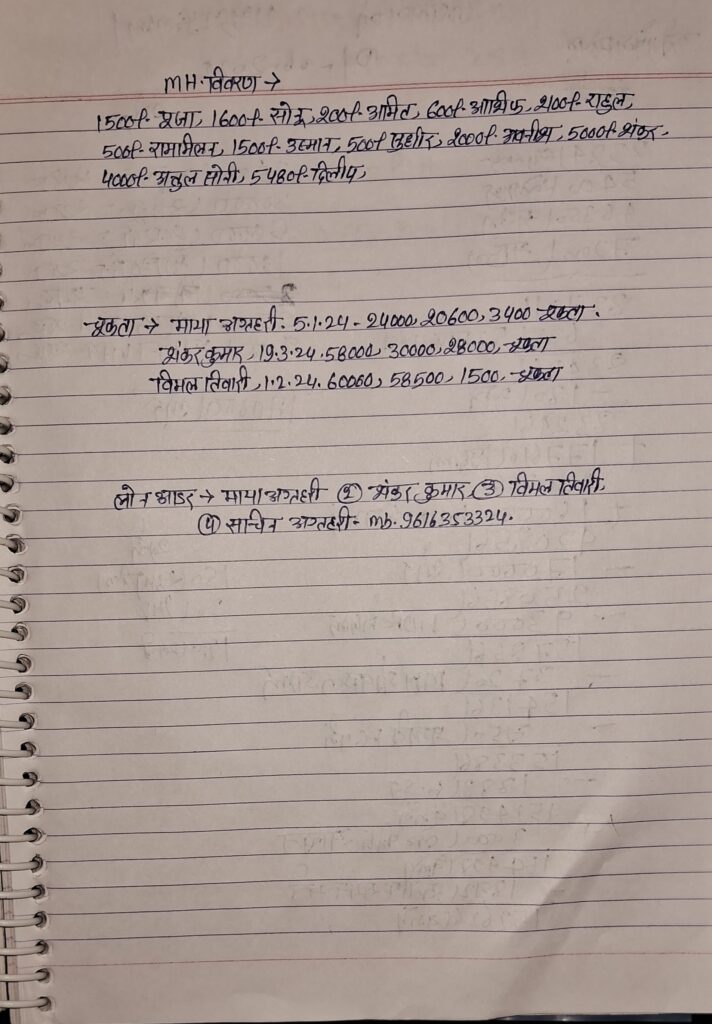 MH.विवरण →
1500/- पूजा, 1600/- सोनू, 200/- अमित, 600/- आशिफ, 2100/- राहुल,
500/- रामामिलन, 1500/- उस्मान, 500/- सुधीर, 2000/- अवनीश, 5000/- शंकर,
4000/- अतुल सोनी, 5480/- दिलीप,
चुकता → माया अग्रहरी. 5.1.24 - 24000, 20600, 3400 चुकता.
शंकर कुमार, 19.3.24.58000, 30000, 28000, चुकता
विमल तिवारी, 1.2.24. 60060, 58500, 1500, चुकता
लोन आडर → माया अग्रहरी (2) शंकर कुमार (3) विमल तिवारी,
(4) साचिन अग्रहरी - mb. 9616353324.